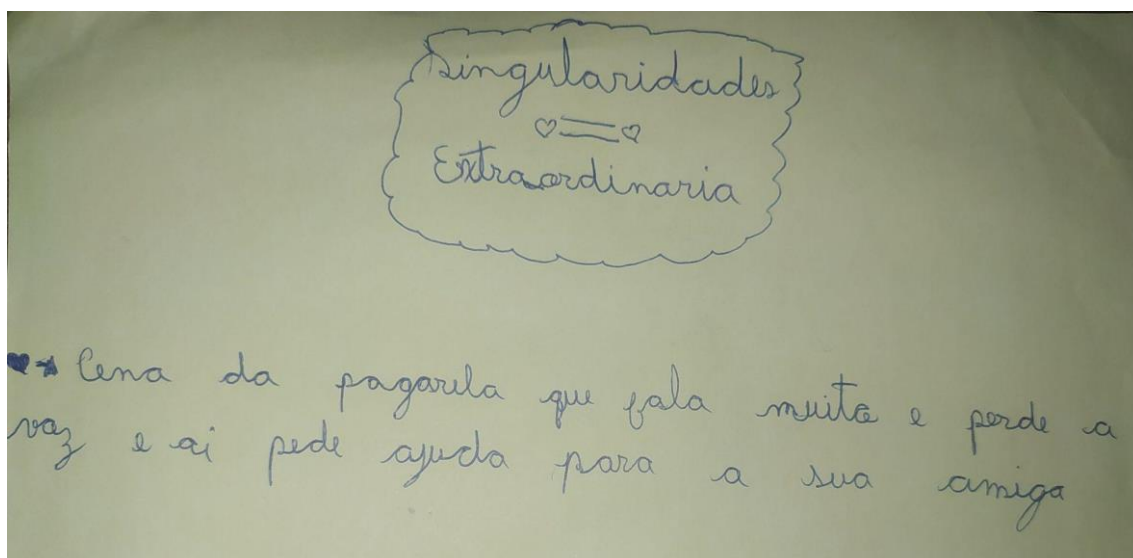 Singularidades
Extraordinaria
Cena da pagarela que fala muito e perde a
voz e ai pede ajuda para a sua amiga